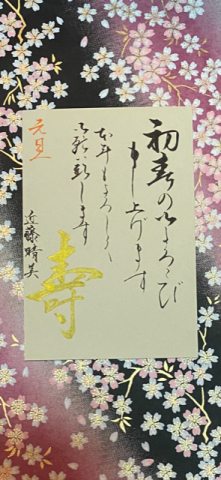 初春の御よろこび
申し上げます
本年もよろしく
御願い致します
元旦
寿
近藤晴美